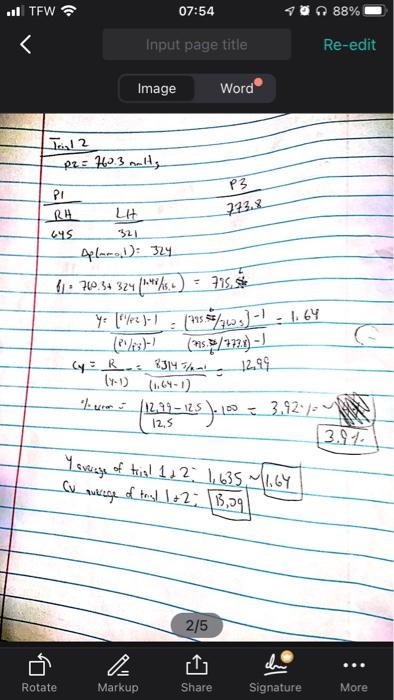 TFW 07:54 88%
Input page title Re-edit
Image Word
Trial 2
P2 = 760.3 mmHg
P1 P3
RH LH 773.8
645 321
Δp(mmoil) = 324
P1 = 760.3 + 324 (1.48/13.6) = 795.6
γ = (P1/P2)-1 / (P1/P3)-1 = (795.6/760.3)-1 / (795.6/773.8)-1 = 1.64
Cv = R / (γ-1) = 8.314 J/k·mol / (1.64-1) = 12.99
% error = (12.99-12.5 / 12.5) · 100 = 3.92% = ~
3.9%
γ average of trial 1+2: 1.635 ~ 1.64
Cv average of trial 1+2: 13.09
2/5
Rotate Markup Share Signature More